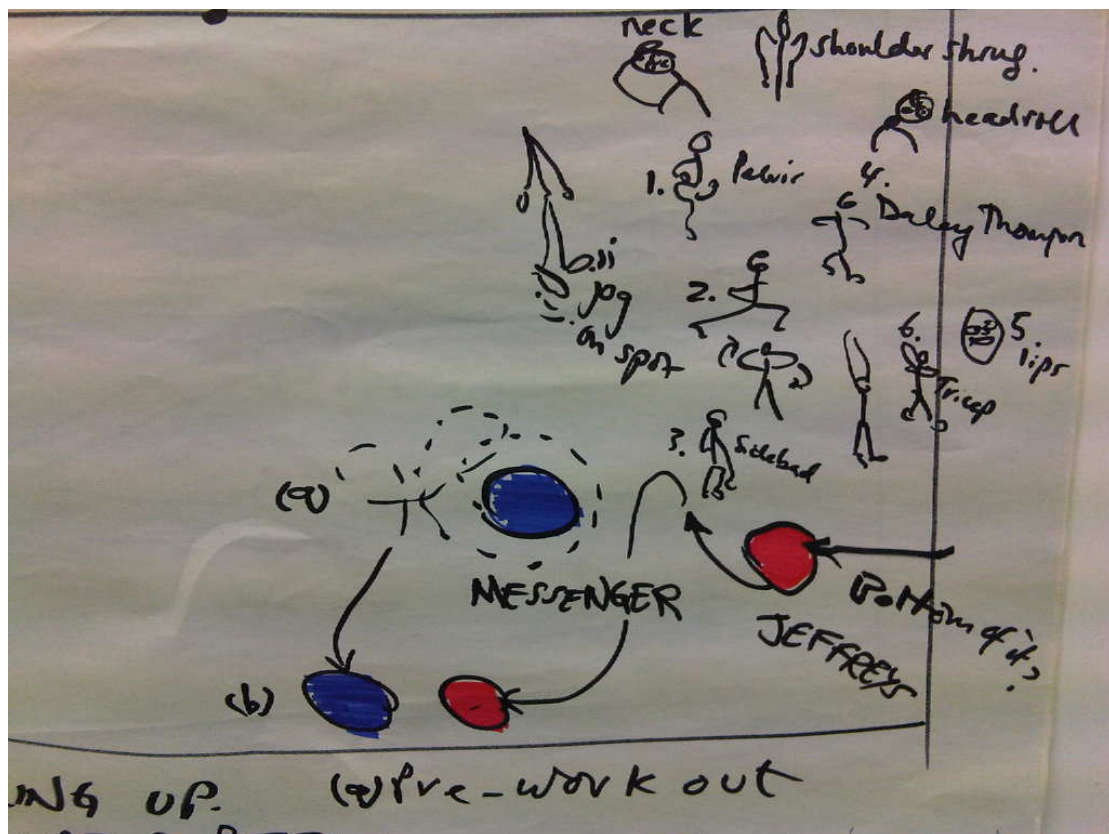 neck
shoulder shrug.
headroll
1. Pelvic
4.
Daley Thompson
jog
on spot
2.
6.
Tricep
5
lips
3.
(a)
MESSENGER
JEFFREYS
Bottom of it?
(b)
ING UP. (a) Pre-work out